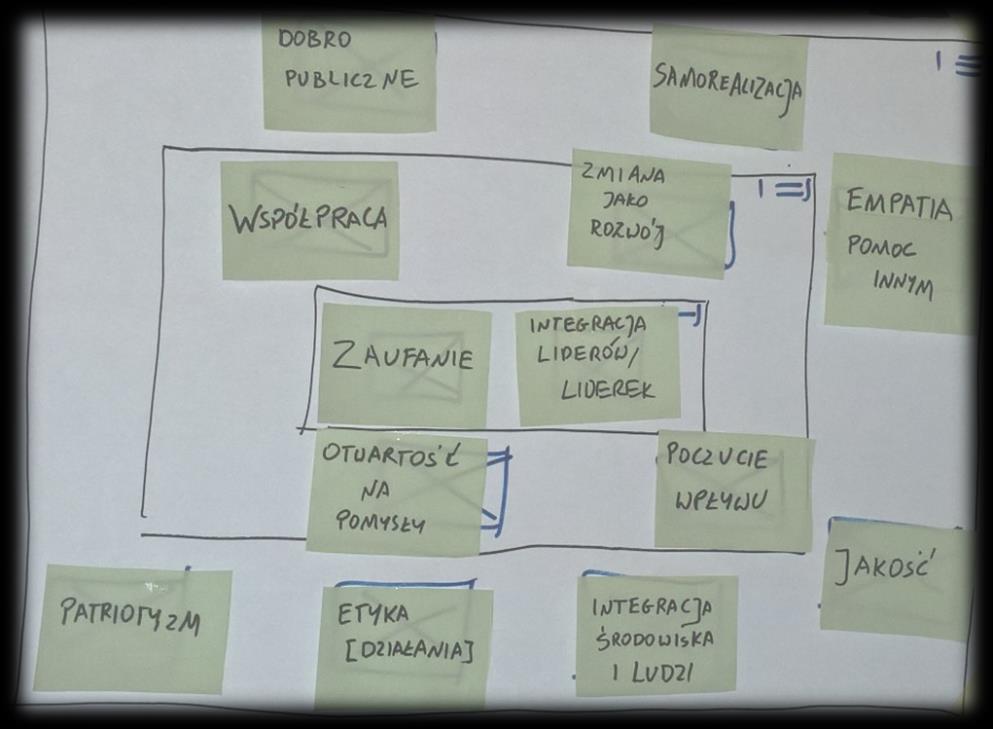 DOBRO
PUBLICZNE
SAMOREALIZACJA
WSPÓŁPRACA
ZMIANA
JAKO
ROZWÓJ
EMPATIA
POMOC
INNYM
ZAUFANIE
INTEGRACJA
LIDERÓW/
LIDEREK
OTWARTOŚĆ
NA
POMYSŁY
POCZUCIE
WPŁYWU
JAKOŚĆ
PATRIOTYZM
ETYKA
[DZIAŁANIA]
INTEGRACJA
ŚRODOWISKA
I LUDZI